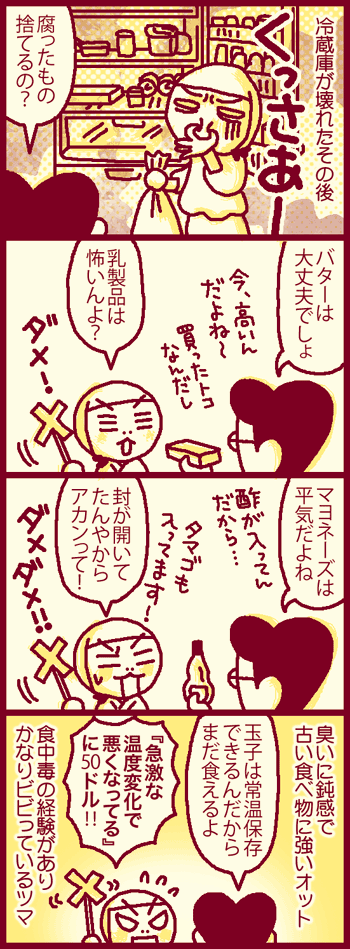 冷蔵庫が壊れたその後
くっさぁー
腐ったもの
捨てるの？
バターは
大丈夫でしょ
今、高いん
だよね〜
買ったトコ
なんだし
乳製品は
怖いんよ？
ダメ！
マヨネーズは
平気だよね
酢が入ってん
だから…
タマゴも
入ってます！
封が開いて
たんやから
アカンって！
ダメダメ!!
臭いに鈍感で
古い食べ物に強いオット
玉子は常温保存
できるんだから
まだ食えるよ
『急激な
温度変化で
悪くなってる』
に50ドル!!
食中毒の経験があり
かなりビビっているツマ